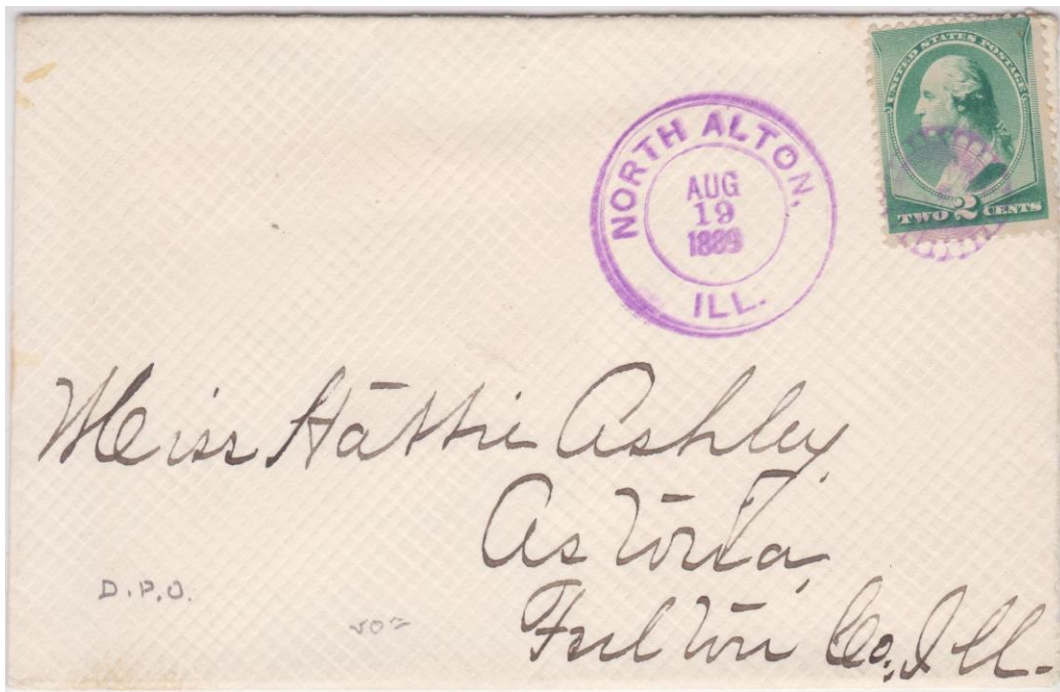 UNITED STATES POSTAGE
TWO 2 CENTS
NORTH ALTON,
AUG
19
1889
ILL.
Miss Hattie Ashley
Astoria,
Fulton Co, Ill.
D.P.O.